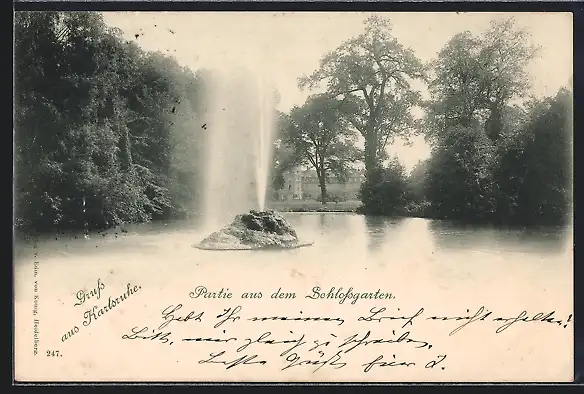 Gruß
aus Karlsruhe.
Partie aus dem Schloßgarten.
Habt Ihr meinen Brief nicht erhalten!
Bitte, mir gleich zu schreiben,
Beste Grüße für
v. Edm. von König, Heidelberg.
247.